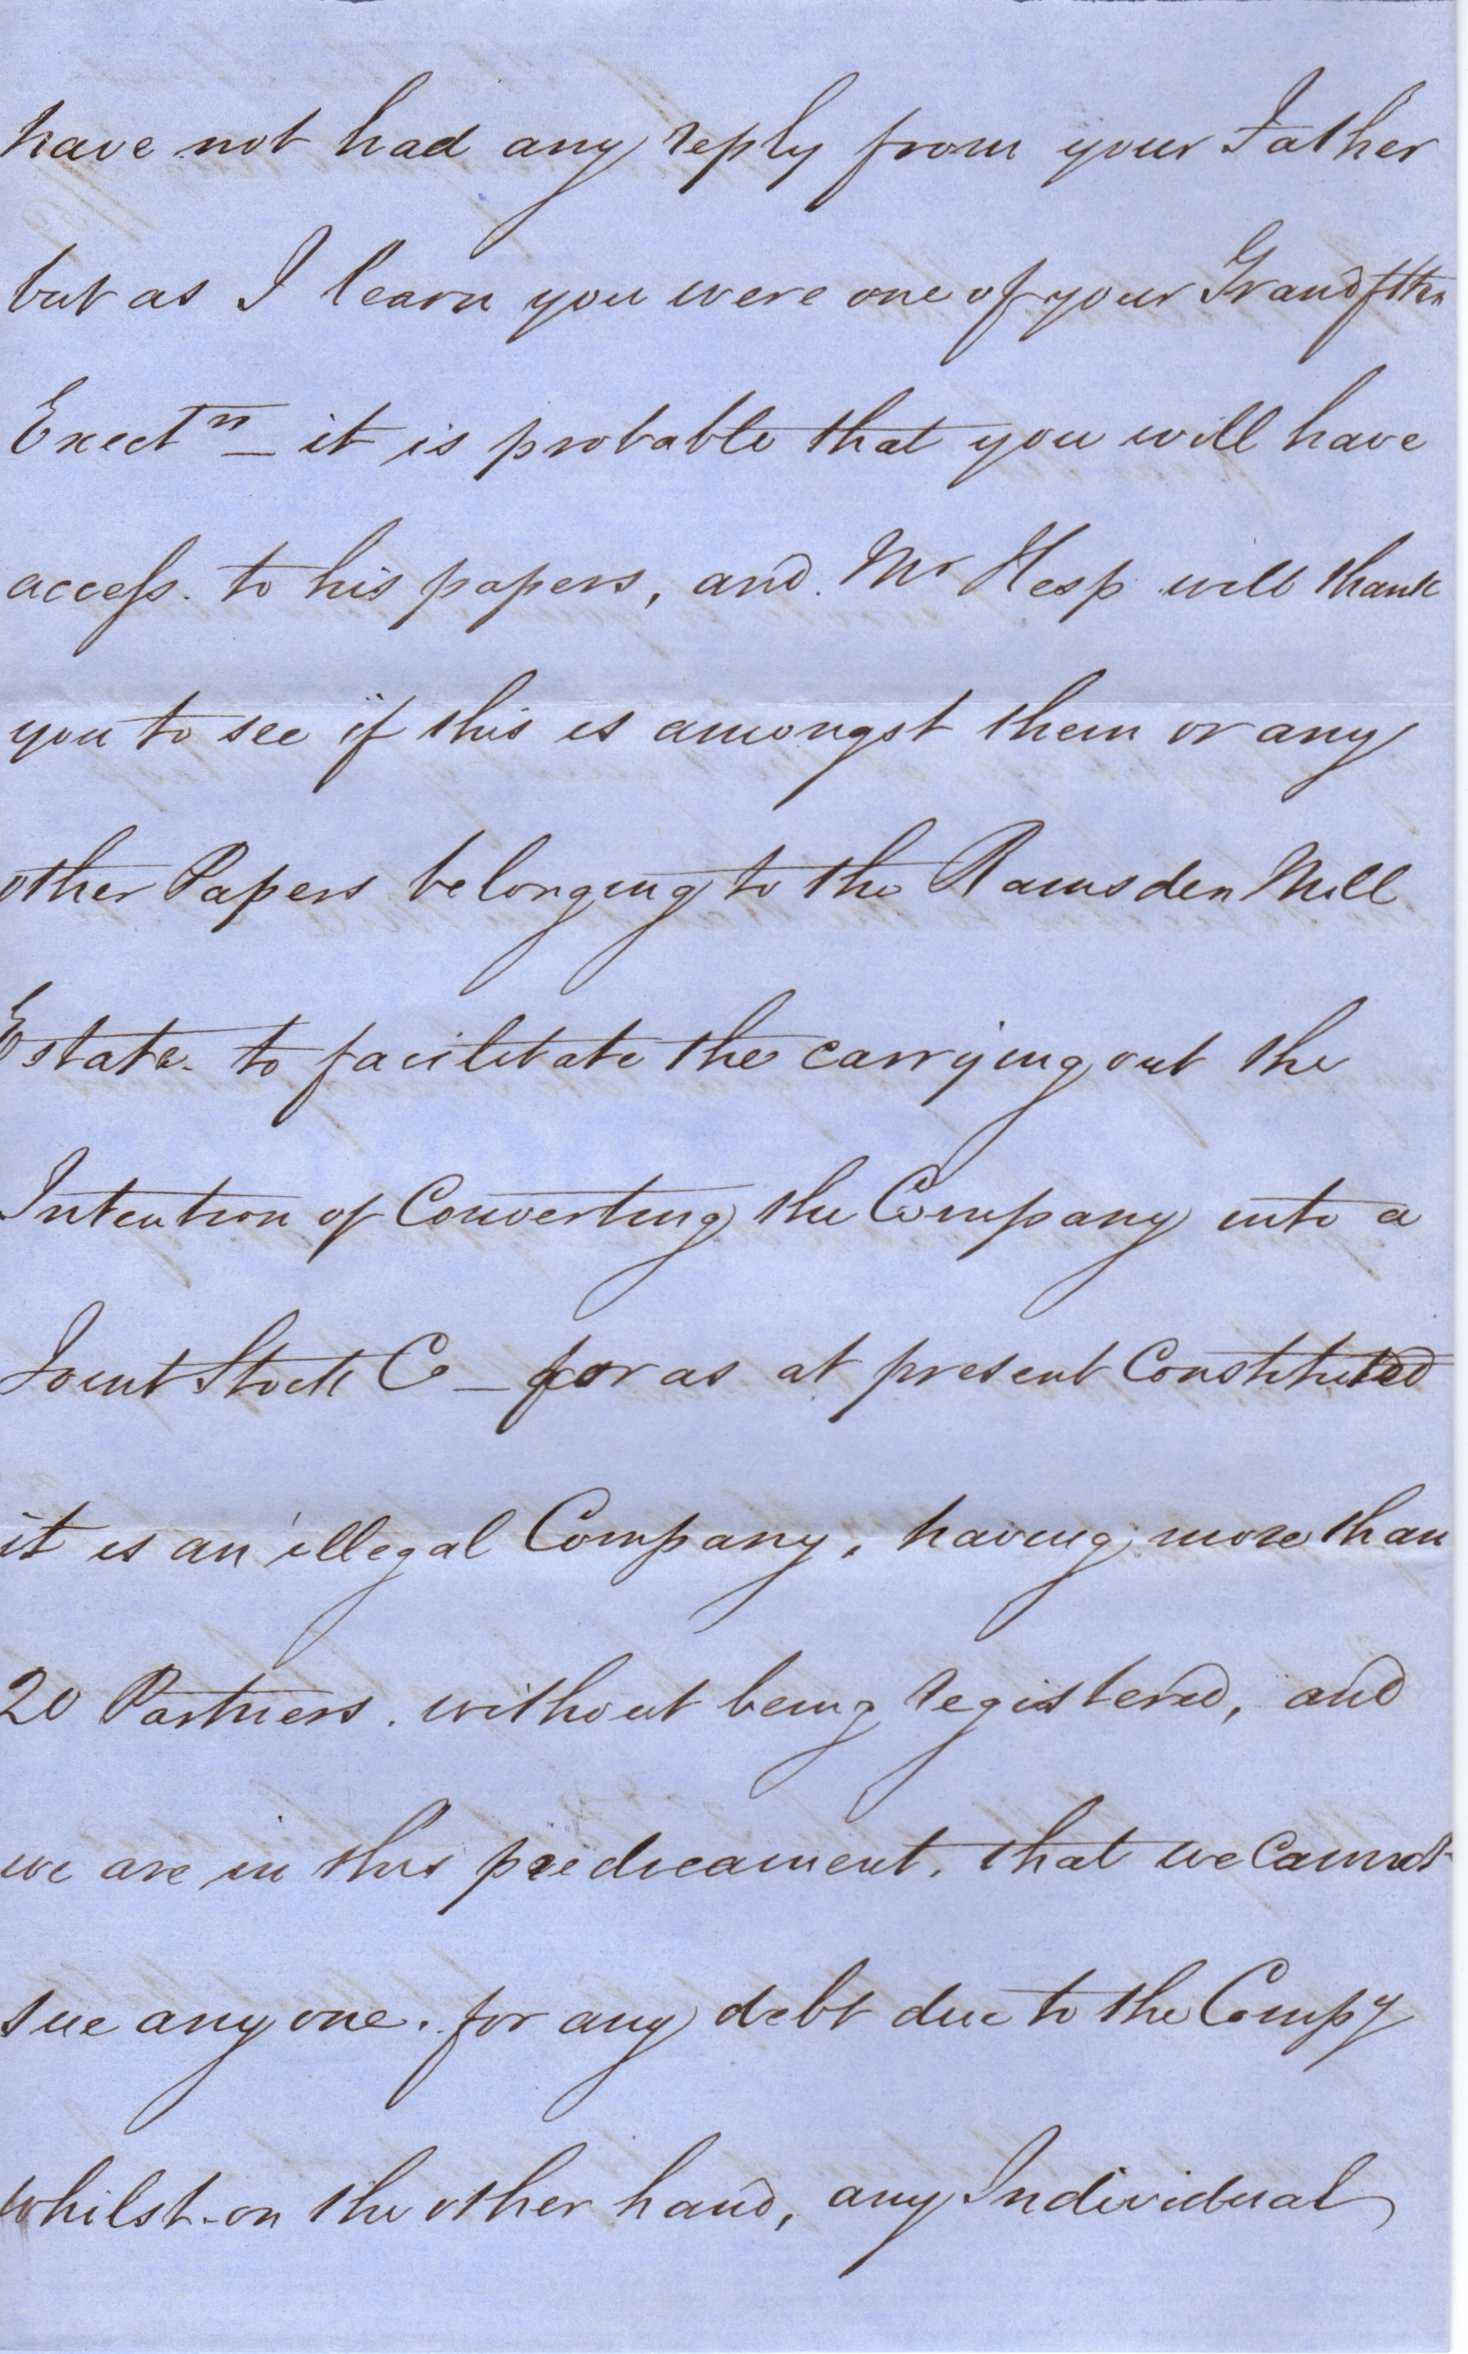 have not had any reply from your Father
but as I learn you were one of your Grandfthrs
Exectrs _ it is probable that you will have
access. to his papers, and. Mr Hesp will thank
you to see if this is amongst them or any
other Papers belonging to the Ramsden Mill
Estate. to facilitate the carrying out the
Intention of Converting the Company into a
Joint Stock Co _ for as at present Constituted
it is an illegal Company, having more than
20 Partners. without being registered, and
we are in this predicament, that we Cannot
sue any one. for any debt due to the Compy
whilst on the other hand, any Individual